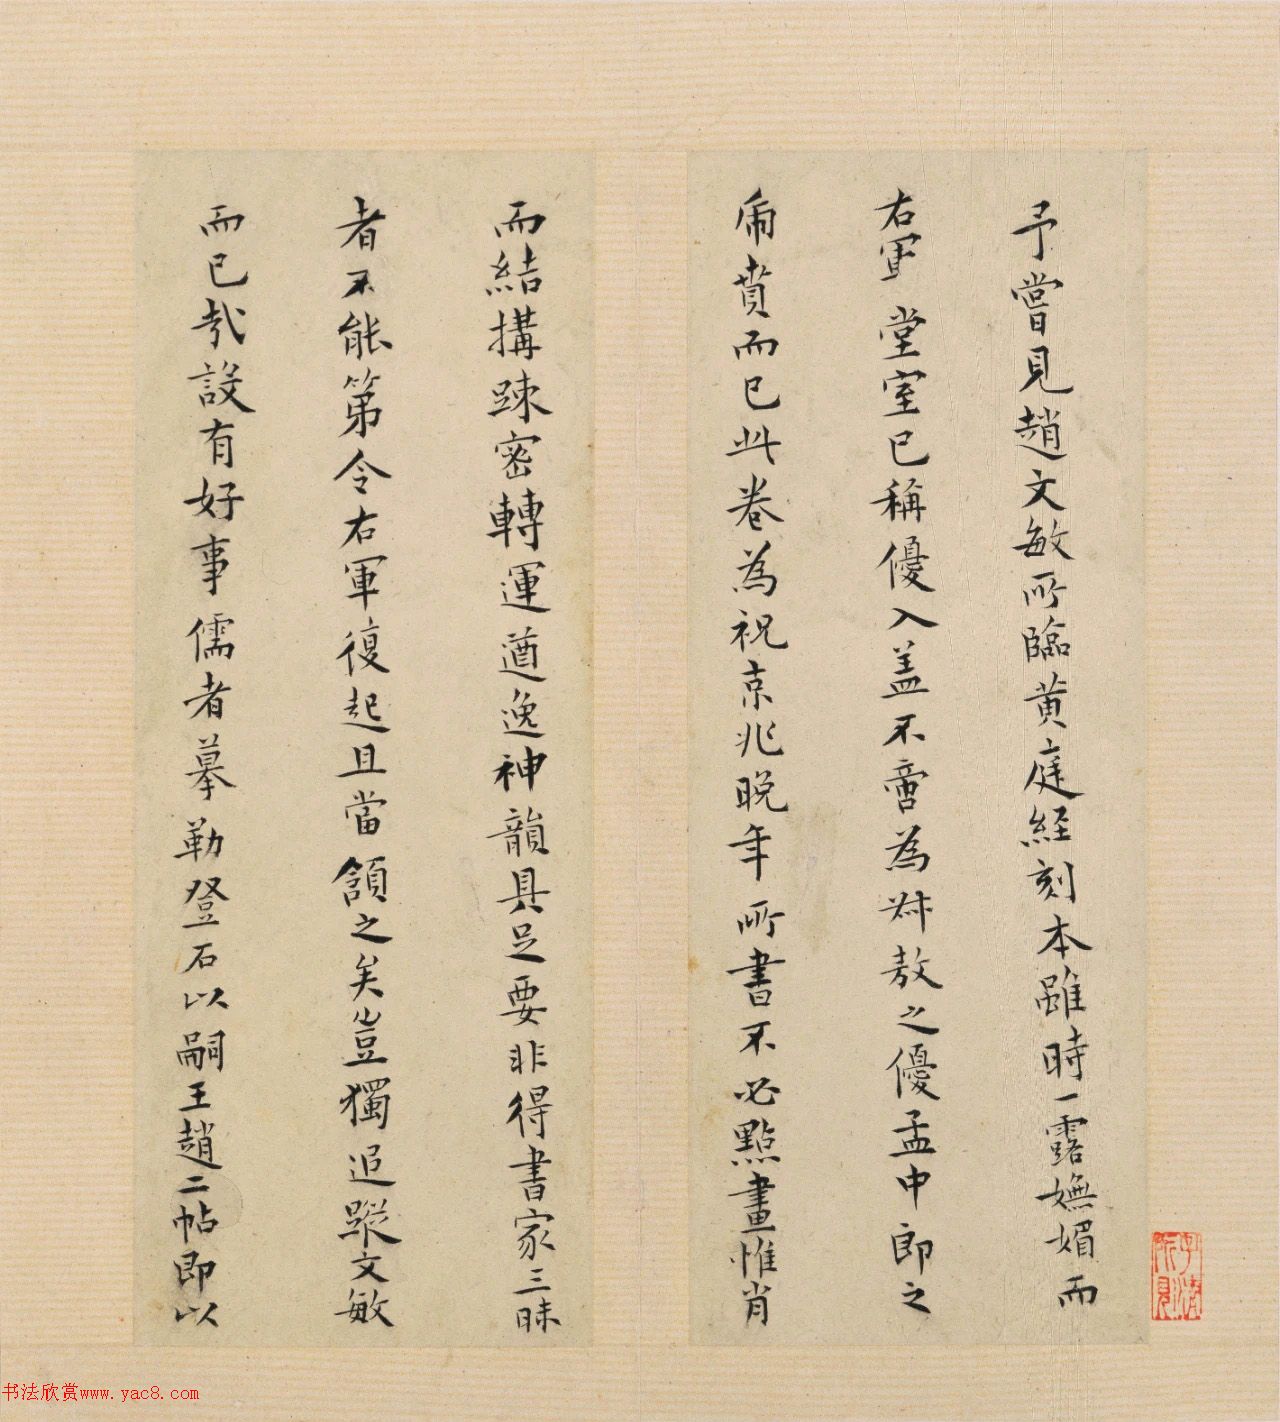 予嘗見趙文敏所臨黃庭經刻本雖時一露嫵媚而
右軍堂室已稱優入盖不啻為叔敖之優孟中郎之
虎賁而已此卷為祝京兆晚年所書不必點畫惟肖
而結搆踈密轉運遒逸神韻具足要非得書家三昧
者不能第令右軍復起且當頷之矣豈獨追蹤文敏
而已哉設有好事儒者摹勒登石以嗣王趙二帖即以
書法欣赏www.yac8.com